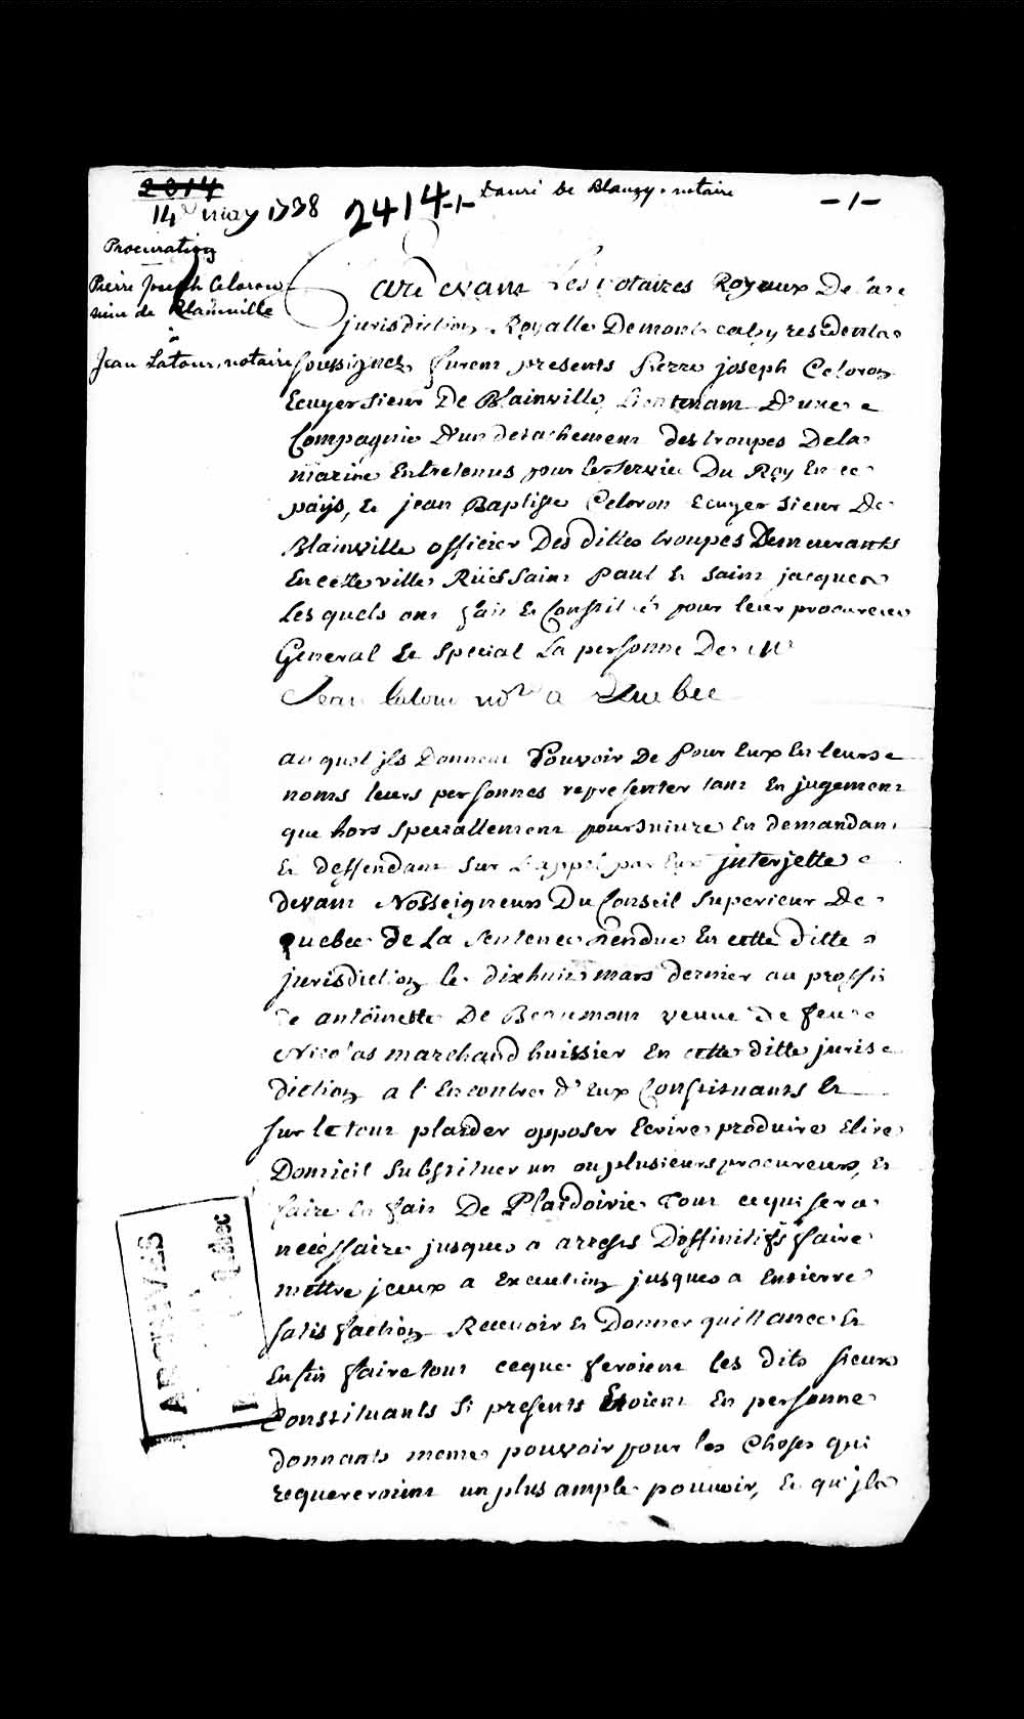 2414
14e may 1738
2414-1-
Danré de Blanzy, notaire
-1-
Procuration
Pierre Joseph Celoron
sieur de Blainville
à
Jean Latour, notaire
Pardevant Les notaires Royaux De la
jurisdiction Royalle De montreal y residents
soussignez furent presents Pierre joseph Celoron
Ecuyer sieur De Blainville Lieutenant D'une
Compagnie D'un detachement des troupes De la
marine Entretenus pour le service Du Roy En ce
païs, Et jean Baptiste Celoron Ecuyer sieur De
Blainville officier Des dittes troupes Demeurants
En cette ville Rües Saint Paul Et saint jacques
Les quels ont fait Et Constitué pour leur procureur
General Et Special La personne De Mr
Jean Latour nore a Quebec
au quel jls Donnent Pouvoir De Pour Eux En leurs
noms leurs personnes representer tant En jugement
que hors speciallement poursuivre En demandant
Et deffendant sur L'appel par Eux jnterjette
devant Nosseigneurs Du Conseil Superieur De
Quebec de La sentence rendue En cette ditte
jurisdiction le dixhuit mars dernier au proffit
De antoinette De Beaumont veuve De feu
Nicolas marchand huissier En cette ditte juris
diction a l'Encontre d'Eux Constituants Et
sur le tout plaider opposer Ecrire produire Elire
Domicil substituer un ou plusieurs procureurs, Et
faire En fait De Plaidoirie Tout ce qui sera
necessaire jusques a arrests Deffinitifs faire
mettre jceux a Execution jusques a Entierre
satisfaction Recevoir Et Donner quittance Et
Enfin faire tout ceque feroient les dits sieurs
Constituants si presents Etoient En personne
donnants meme pouvoir pour les choses qui
requereroient un plus ample pouvoir, Et qu'jls
ARCHIVES
Québec